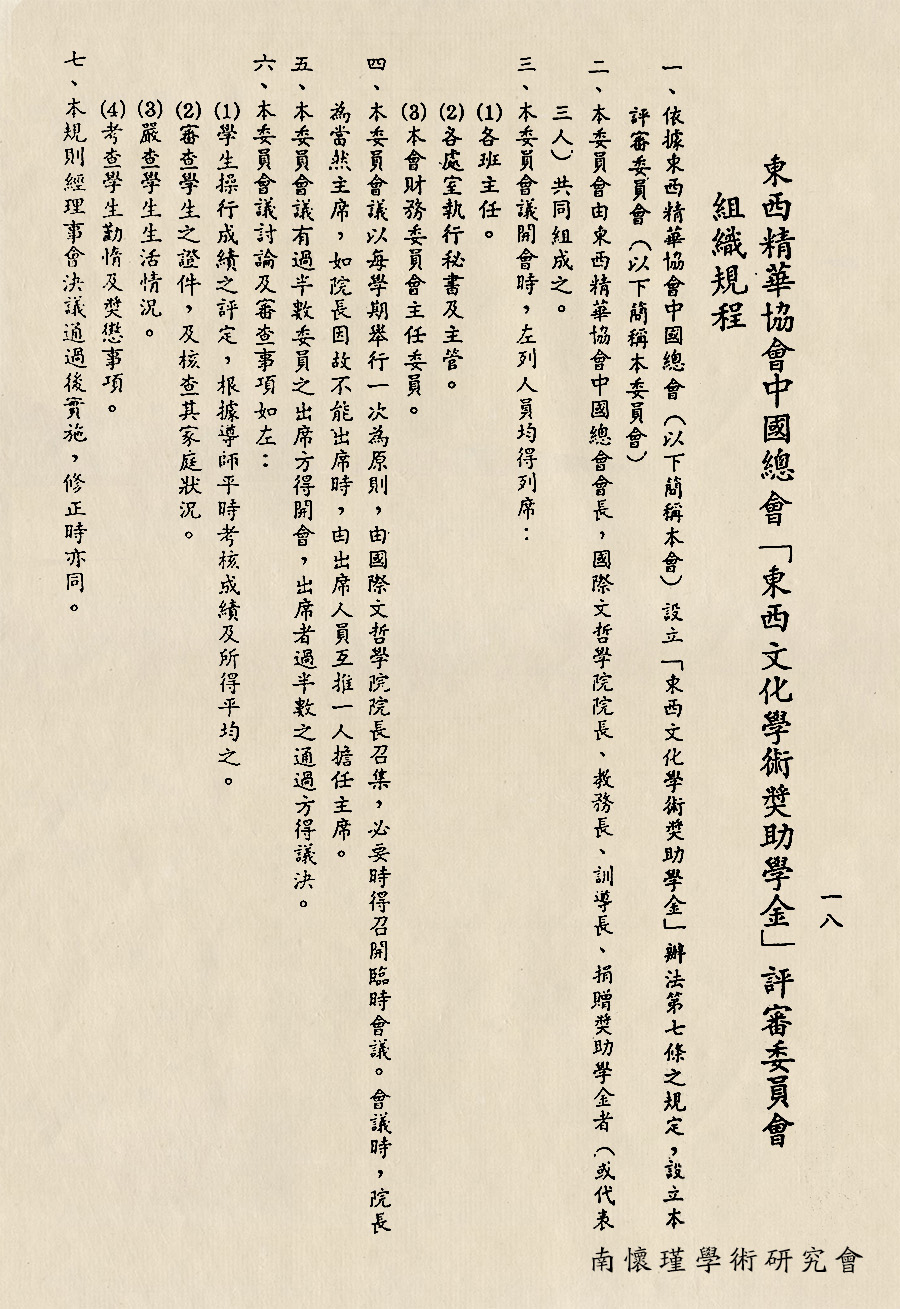 一八
東西精華協會中國總會「東西文化學術獎助學金」評審委員會
組織規程
一、依據東西精華協會中國總會（以下簡稱本會）設立「東西文化學術獎助學金」辦法第七條之規定，設立本
評審委員會（以下簡稱本委員會）
二、本委員會由東西精華協會中國總會會長，國際文哲學院院長、教務長、訓導長、捐贈獎助學金者（或代表
三人）共同組成之。
三、本委員會議開會時，左列人員均得列席：
(1)各班主任。
(2)各處室執行秘書及主管。
(3)本會財務委員會主任委員。
四、本委員會議以每學期舉行一次為原則，由國際文哲學院院長召集，必要時得召開臨時會議。會議時，院長
為當然主席，如院長因故不能出席時，由出席人員互推一人擔任主席。
五、本委員會議有過半數委員之出席方得開會，出席者過半數之通過方得議決。
六、本委員會議討論及審查事項如左：
(1)學生操行成績之評定，根據導師平時考核成績及所得平均之。
(2)審查學生之證件，及核查其家庭狀況。
(3)嚴查學生生活情況。
(4)考查學生勤惰及獎懲事項。
七、本規則經理事會決議通過後實施，修正時亦同。
南懷瑾學術研究會